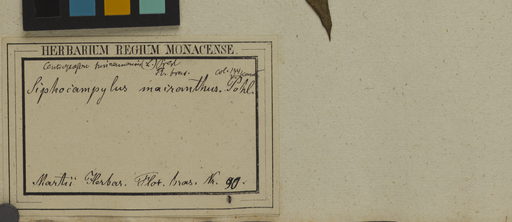 HERBARIUM REGIUM MONACENSE.
Fl. bras.
Siphocampylus macranthus. Pohl.
Martii Herbar. Flor. bras. Nr. 90.